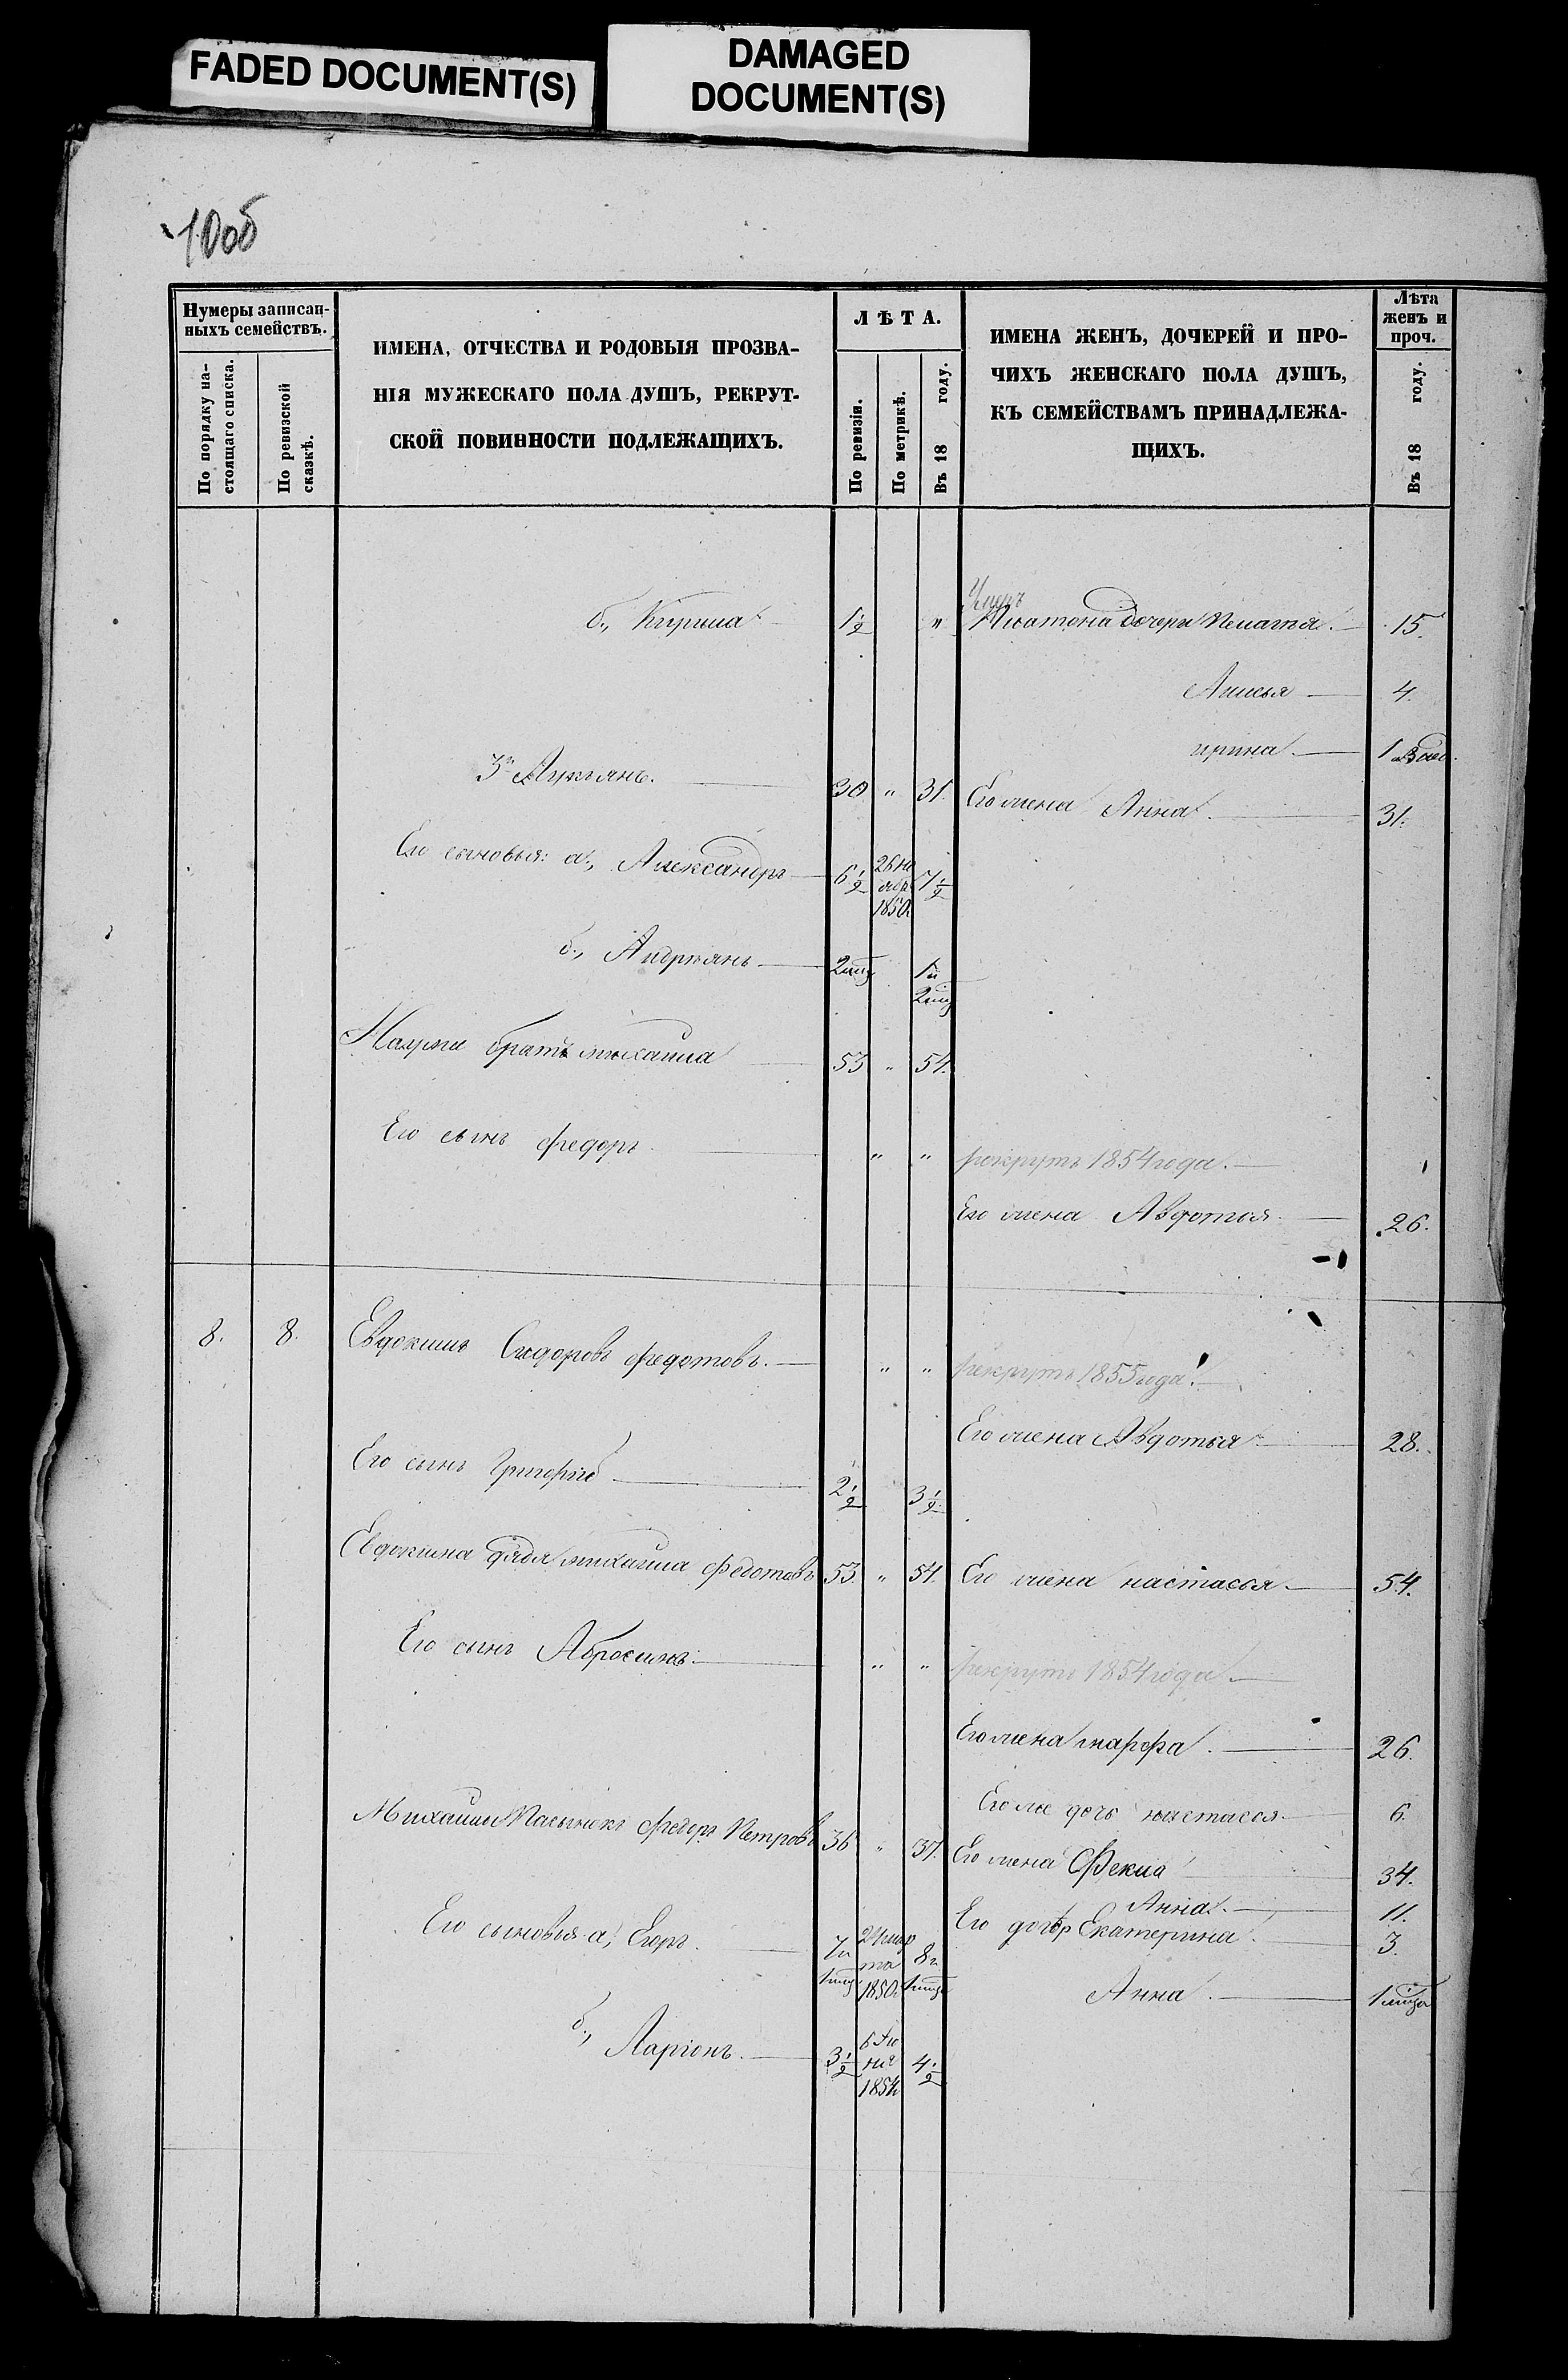 FADED DOCUMENT(S)
DAMAGED
DOCUMENT(S)
10об
Нумеры записан-
ныхъ семействъ.
По порядку на-
стоящаго списка.
По ревизской
сказкѣ.
ИМЕНА, ОТЧЕСТВА И РОДОВЫЯ ПРОЗВА-
НІЯ МУЖЕСКАГО ПОЛА ДУШЪ, РЕКРУТ-
СКОЙ ПОВИННОСТИ ПОДЛЕЖАЩИХЪ.
ЛѢТА.
По ревизіи.
По метрикѣ.
Въ 18 году.
ИМЕНА ЖЕНЪ, ДОЧЕРЕЙ И ПРО-
ЧИХЪ ЖЕНСКАГО ПОЛА ДУШЪ,
КЪ СЕМЕЙСТВАМЪ ПРИНАДЛЕЖА-
ЩИХЪ.
Лѣта
женъ и
проч.
Въ 18 году.
Умеръ
б., Кирила 1½ " дочери Пелагея. 15.
Анисья 4.
ирина 1
3й Лукьянъ. 30 " 31. Его жена Анна. 31.
Его сыновья: а., Александръ 6½ 26 но
ябр
1850 7½
б., Андреянъ 2 мц 1 и
2 мц
Наума братъ михаила 53 " 54.
Его сынъ федоръ " " рекрутъ 1854 года.
Его жена Авдотья 26.
8. 8. Евдокимъ Сидоровъ федотовъ. " " рекрутъ 1855 года.
Его жена Авдотья 28.
Его сынъ Григорій 2½ 3½
Евдокима дядя михаила Федотовъ 53. " 54. Его жена настасья 54.
Его сынъ Абросимъ " " рекрутъ 1854 года
Его жена марфа. 26.
Его же дочь настасья 6.
Михаила Пасынокъ федоръ Петровъ 36 " 37. Его жена Фекла 34.
Анна. 11.
Его дочер Екатерина. 3.
Его сыновья а, Егоръ. 7 и
1 мц 24 мар
та
1850. 8 и
1 мца
Анна. 1 мца
б., Ларіонъ. 3½ 6 Iю
ня
1854 4½